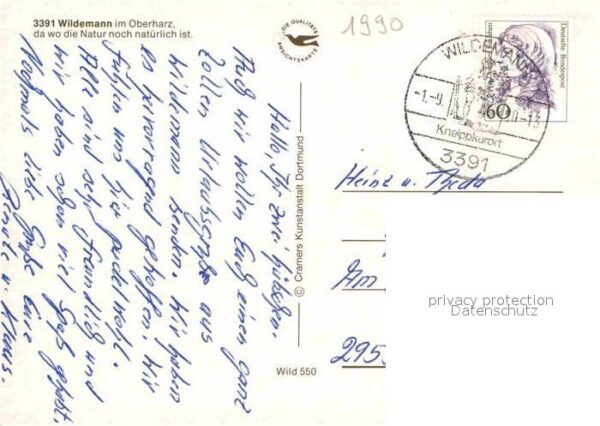 3391 Wildemann im Oberharz,
da wo die Natur noch natürlich ist.
DIE QUALITÄTS
ANSICHTSKARTE
1990
Deutsche Bundespost
60
WILDEMANN
-1.-9. 90-13
Kneippkurort
3391
Hallo, Ihr zwei hübschen.
Auch wir wollen Euch einen ganz
tollen Urlaubsgruß aus
Wildemann senden. Wir haben
es hervorragend getroffen. Wir
fühlen uns hier pudelwohl.
Alle sind sehr freundlich und
wir haben schon viel Spaß gehabt.
Nochmals liebe Grüße Eure
Renate u. Klaus.
© Cramers Kunstanstalt Dortmund
Wild 550
Heinz u. Theda
Am
295
privacy protection
Datenschutz